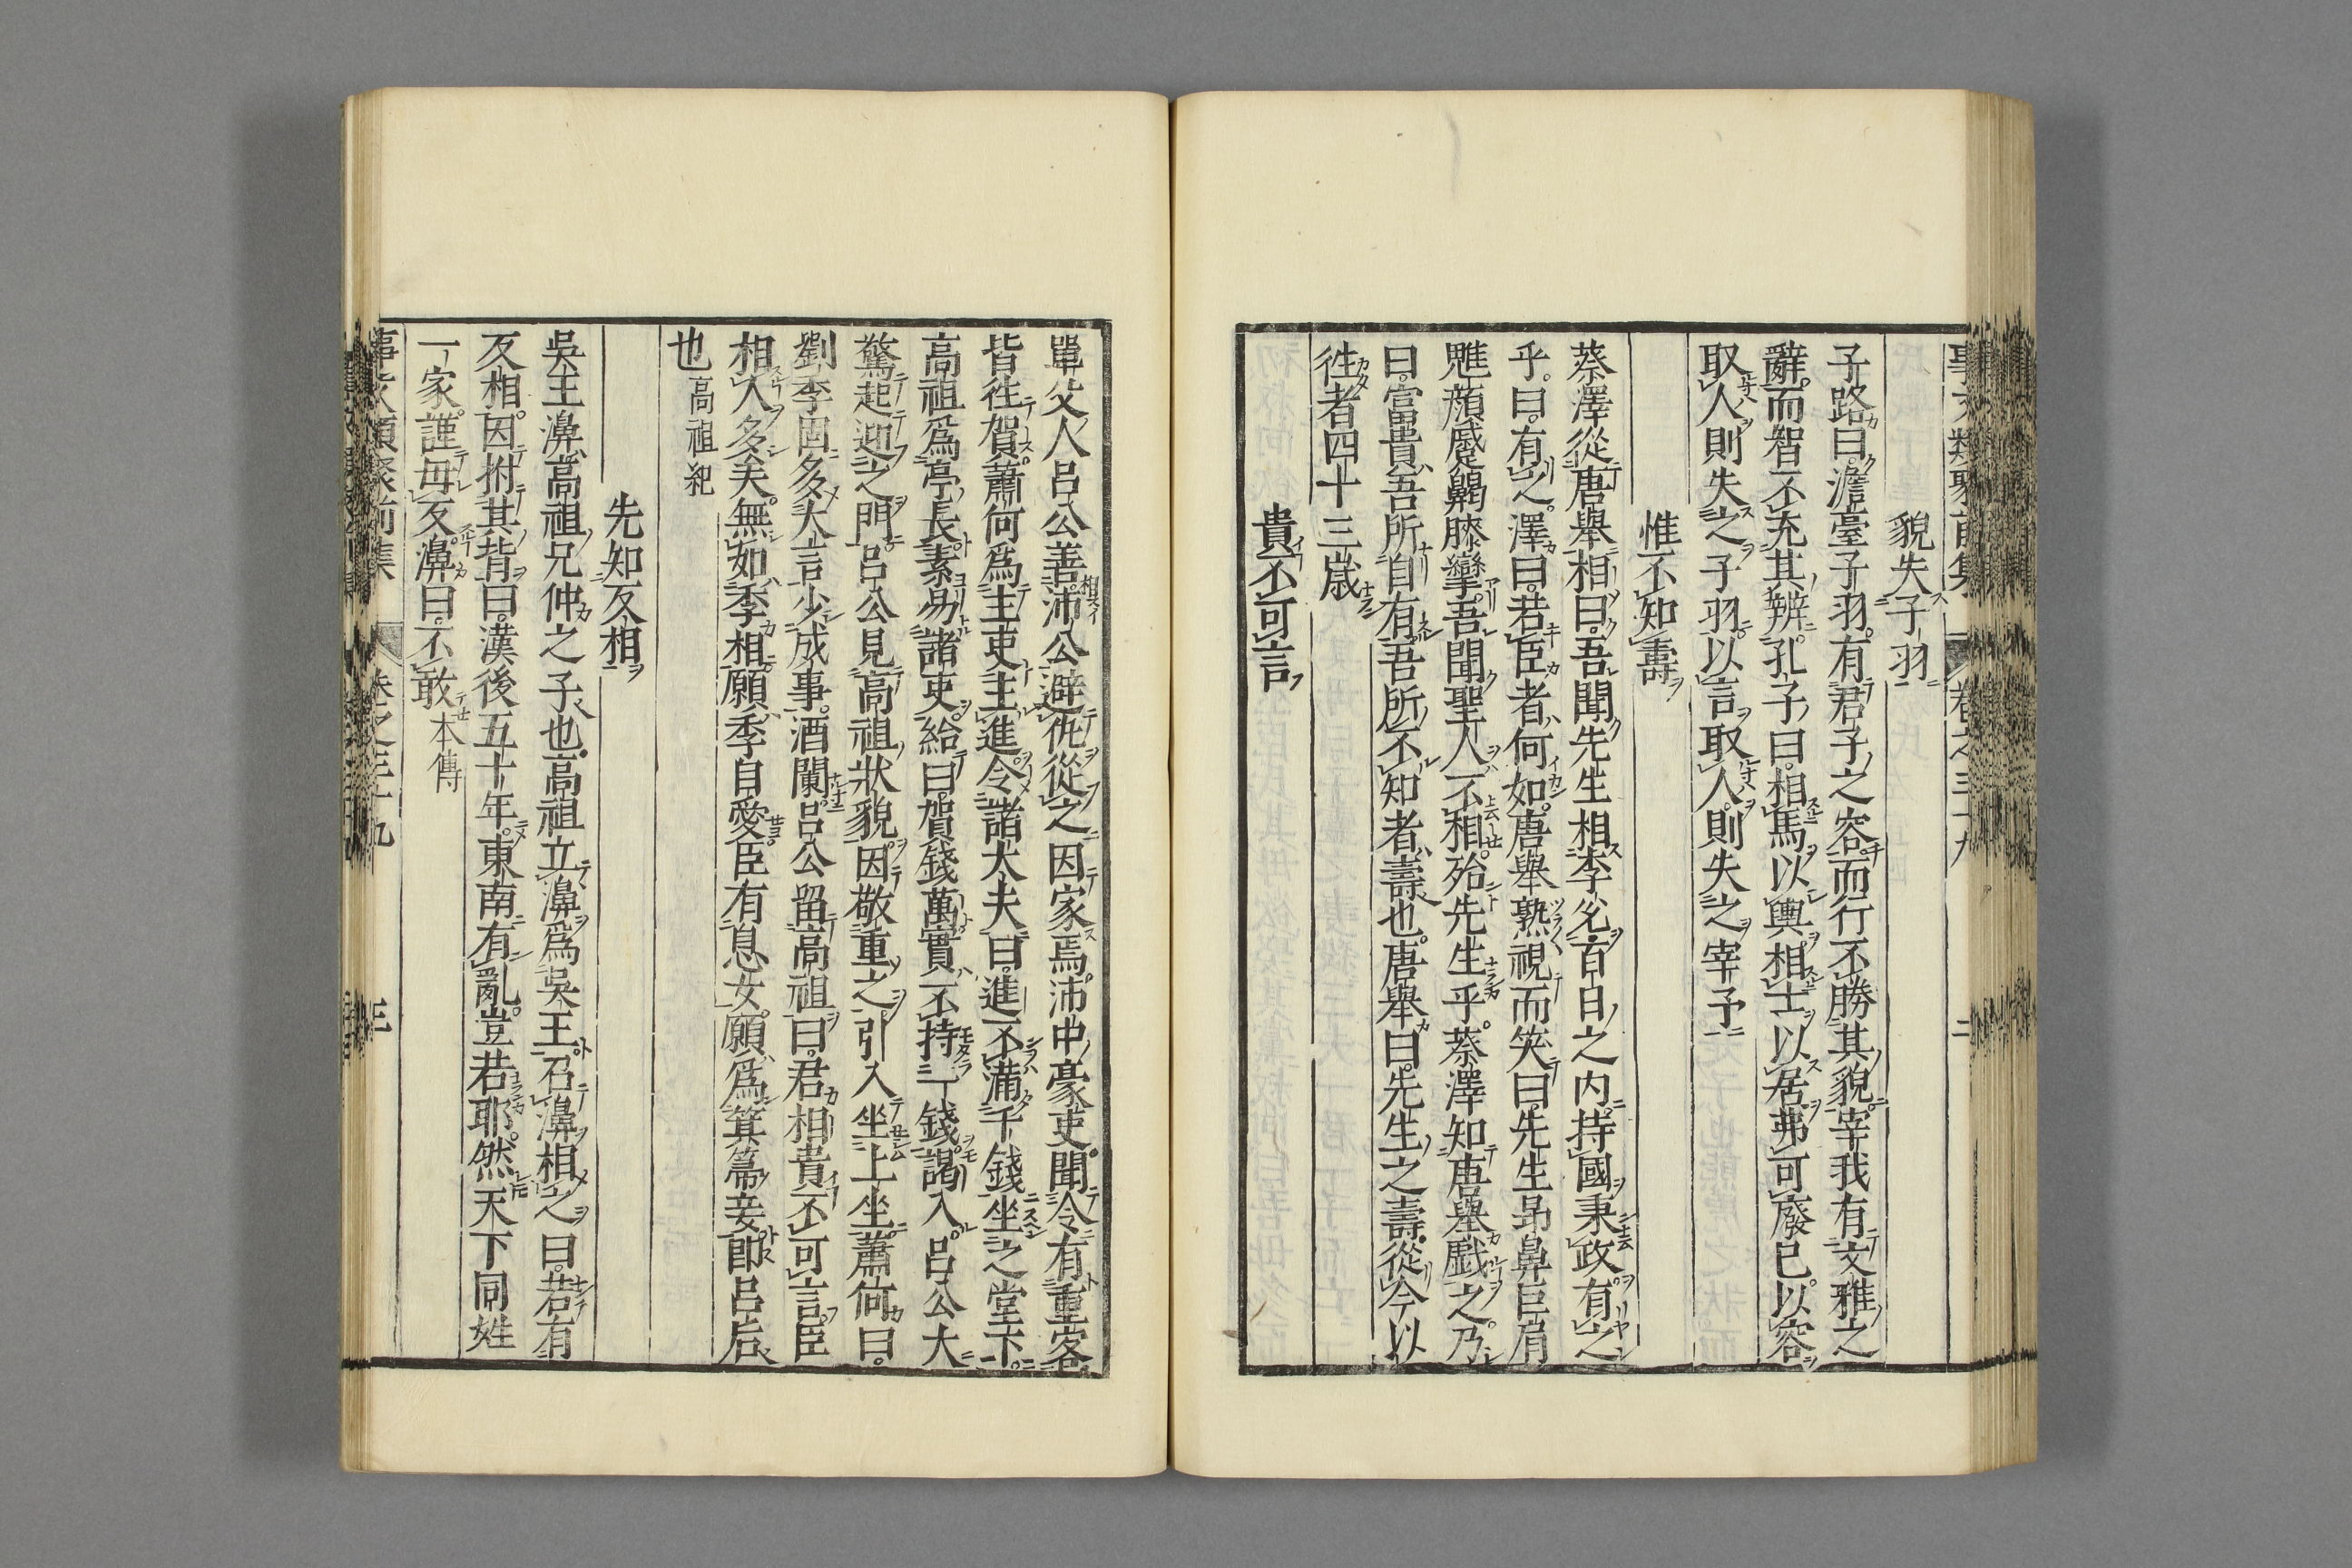 事文類聚前集 卷之三十九 二
貌失子羽
子路曰。澹臺子羽。有君子之容。而行不勝其貌。宰我有文雅之
辭。而智不充其辨。孔子曰。相馬以輿。相士以居。弗可廢已。以容
取人則失之子羽。以言取人。則失之宰予
惟不知壽
蔡澤從唐舉相曰。吾聞先生相李兌。百日之内。持國秉政。有之
乎。曰。有之。澤曰。若臣者。何如。唐舉熟視而笑曰。先生曷鼻巨肩
魋顔蹙齃膝攣。吾聞聖人不相。殆先生乎。蔡澤知唐舉戲之。乃
曰。富貴吾所自有。吾所不知者。壽也。唐舉曰。先生之壽。從今以
徃者四十三歳
貴不可言
單父人呂公善沛公。避仇從之。因家焉。沛中豪吏。聞令有重客
皆徃賀。蕭何爲主吏。主進。令諸大夫曰。進不滿千錢。坐之堂下。
高祖爲亭長。素易諸吏。紿曰。賀錢萬。實不持一錢。謁入。呂公大
驚起迎之門。呂公見高祖狀貌。因敬重之。引入坐上坐。蕭何曰。
劉季固多大言。少成事。酒闌。呂公留高祖曰。君相貴不可言。臣
相人多矣。無如季相。願季自愛。臣有息女。願爲箕箒妾。即呂后
也 高祖紀
先知反相
吳王濞。高祖兄仲之子也。高祖立濞爲吳王。召濞相之曰。若有
反相。因拊其背曰。漢後五十年。東南有亂。豈若耶。然天下同姓
一家。謹毋反。濞曰。不敢 本傳
事文類聚前集 卷之三十九 三